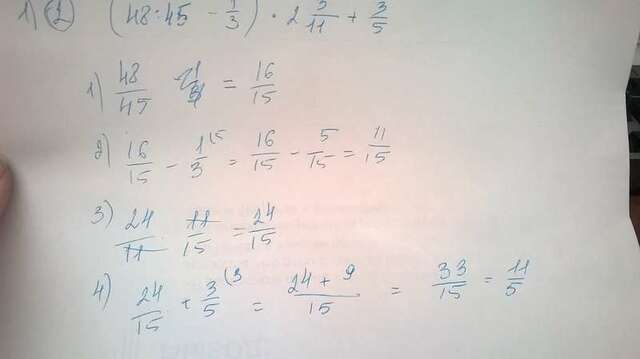 1) 2 (48:45 - 1/3) · 2 /11 + 3/5
1) 48/45 = 16/15
2) 16/15 - 1/3 (5 = 16/15 - 5/15 = 11/15
3) 24/11 · 11/15 = 24/15
4) 24/15 + 3/5 (3 = 24 + 9/15 = 33/15 = 11/5